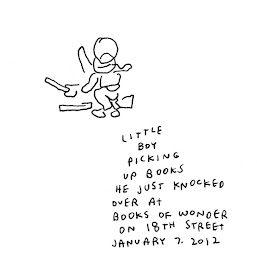 LITTLE
BOY
PICKING
UP BOOKS
HE JUST KNOCKED
OVER AT
BOOKS OF WONDER
ON 18TH STREET
JANUARY 7, 2012